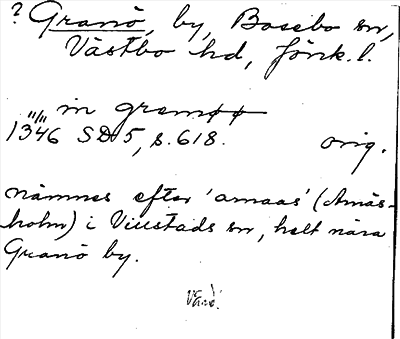 ? Granö, by, Bosebo sn,
Västbo hd, Jönk. l.
in gremøø
11/11 1346 SD 5, s. 618. orig.
nämnes efter 'amaas' (Amås-
holm) i Villstads sn, helt nära
Granö by.